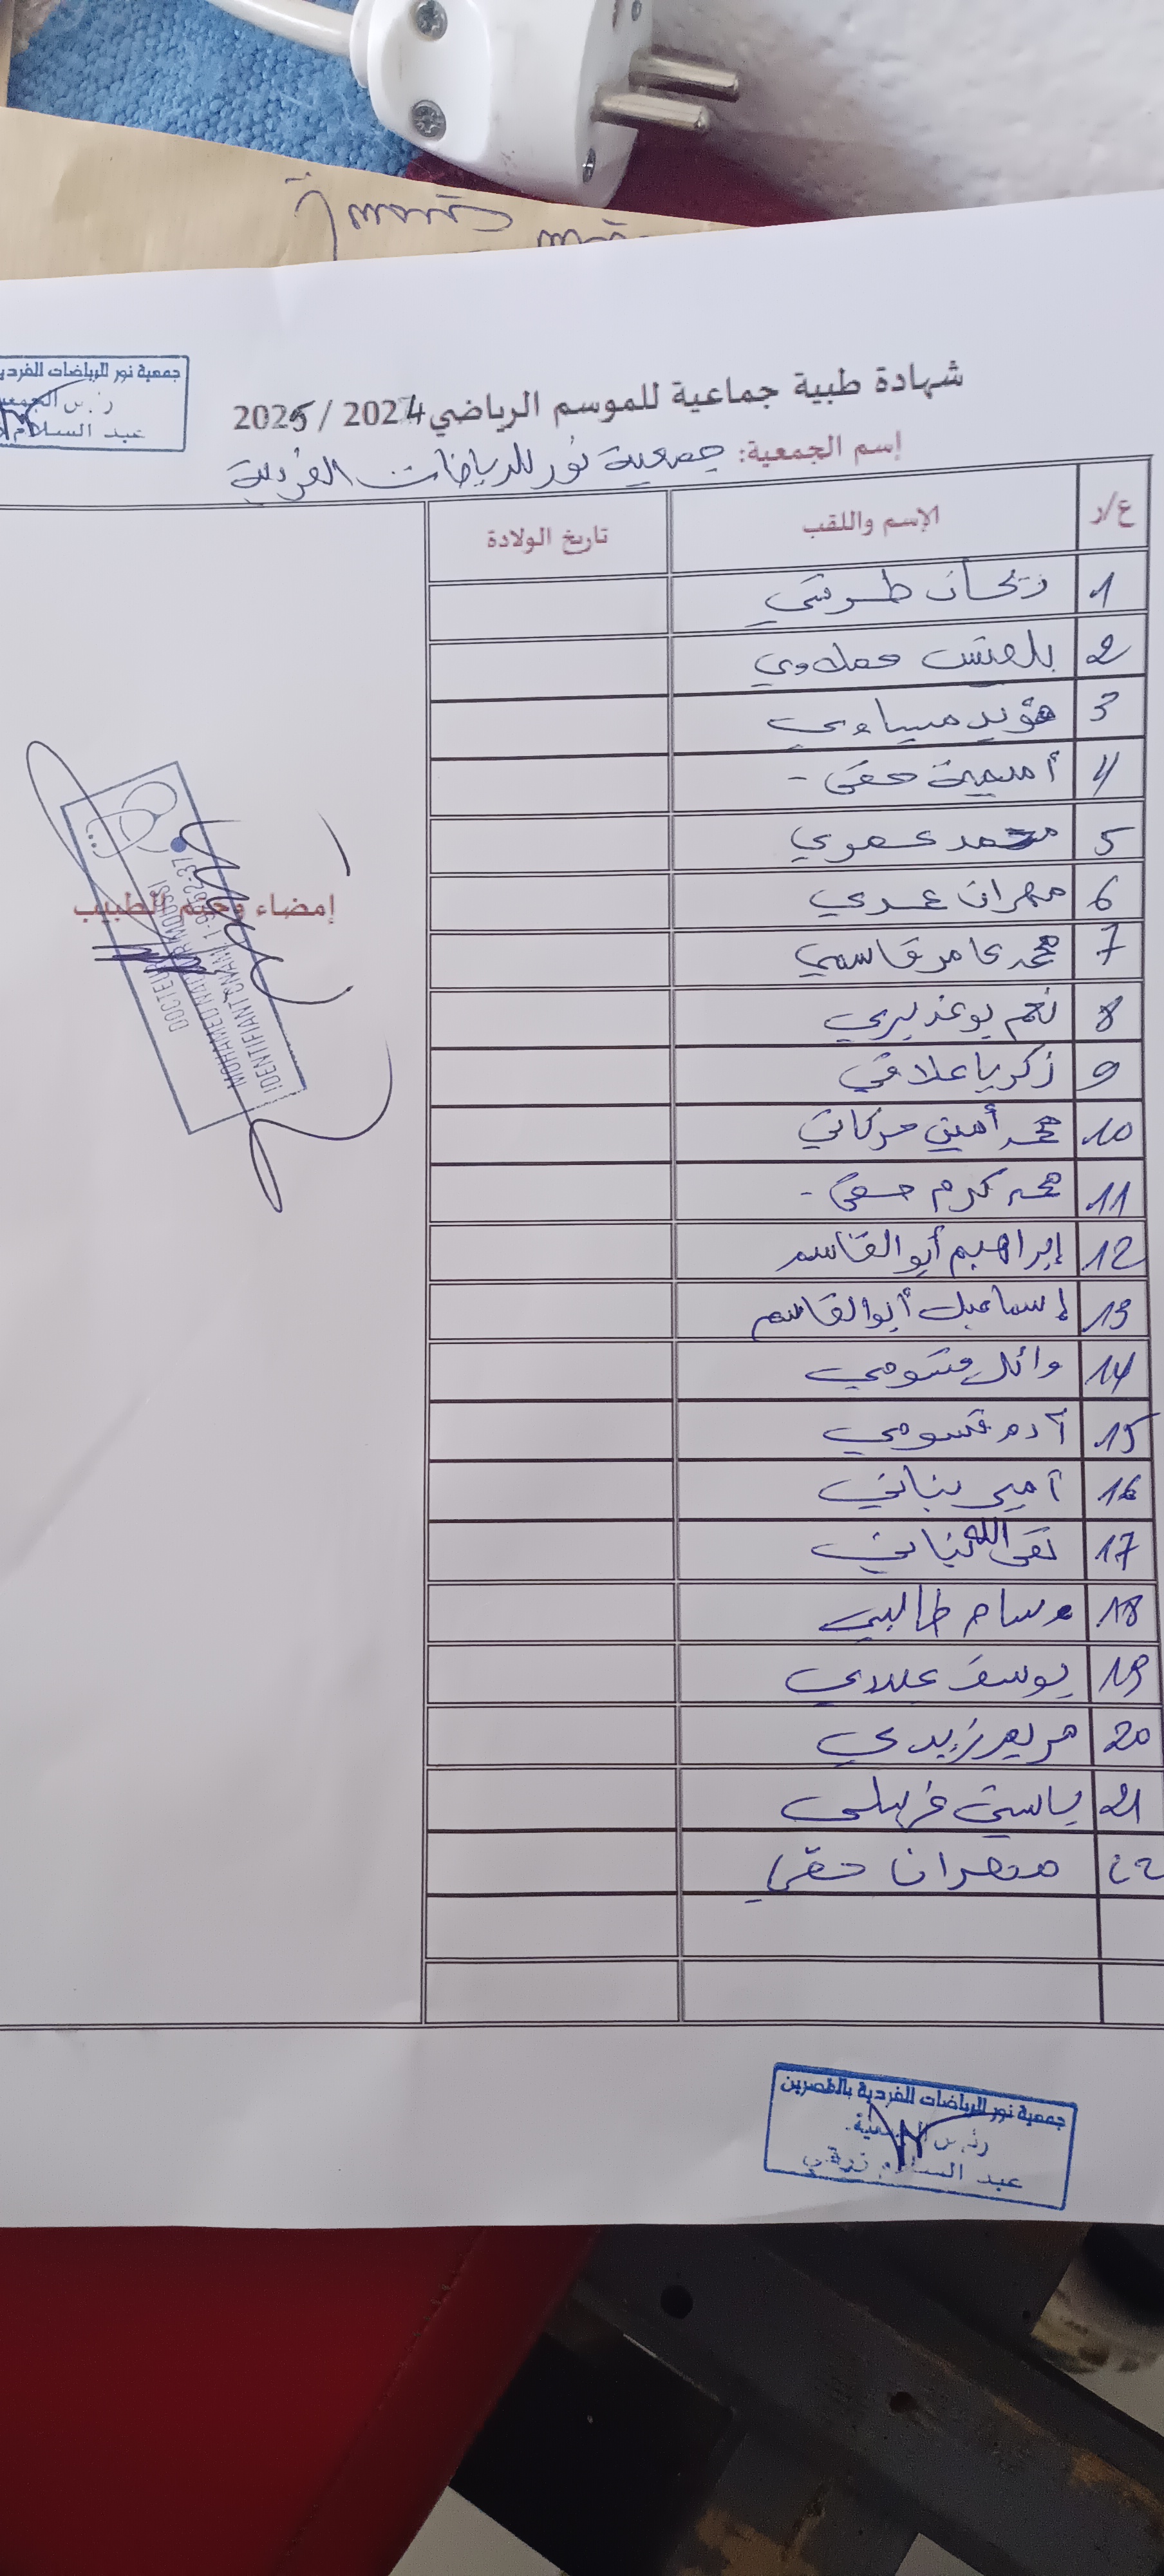 جمعية نور للرياضات الفردية
عبد السلام
شهادة طبية جماعية للموسم الرياضي 2024 / 2025
إسم الجمعية: جمعية نور للرياضات الفردية
ع/ر الإسم واللقب تاريخ الولادة
1
2
3 مؤيد
4 أميمة حقي -
5 محمد عموي
6 مهران عمري
7 محمد عامر قاسمي
8 بوغديري
9 زكريا علاقي
10 محمد أمين حركاتي
11 محمد كرم حقي -
12 إبراهيم أبو القاسم
13 إسماعيل أبو القاسم
14 وائل قسومي
15 آدم قسومي
16 أمير بناني
17 تقى الله بناني
18 وسام طالبي
19 يوسف
20 مريم زيدي
21 ياسين
22 مهران حقي
إمضاء وختم الطبيب
DOCTEUR
MOHAMED
IDENTIFIANT CNAM:
جمعية نور للرياضات الفردية بالقصرين
رئيس الجمعية
عبد السلام زرقي